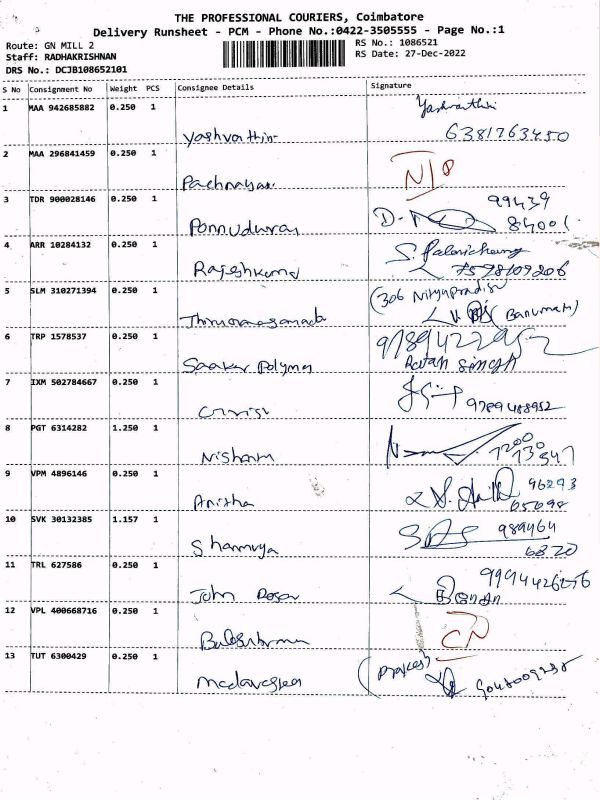 THE PROFESSIONAL COURIERS, Coimbatore
Delivery Runsheet - PCM - Phone No.:0422-3505555 - Page No.:1
Route: GN MILL 2
RS No.: 1086521
Staff: RADHAKRISHNAN
RS Date: 27-Dec-2022
DRS No.: DCJB108652101
S No Consignment No Weight PCS Consignee Details Signature
1 MAA 942685882 0.250 1
Yashvanthini
6381763450
2 MAA 296841459 0.250 1
3 TDR 900028146 0.250 1
99439
Ponnudurai
84001
4 ARR 10284132 0.250 1
Rajeshkumar
7598109206
5 SLM 310271394 0.250 1
(306
Banumathi)
6 TRP 1578537 0.250 1
Saakar Polymer
Ratan Singh
7 IXM 502784667 0.250 1
9789488952
8 PGT 6314282 1.250 1
Nishanth
7200
730
547
9 VPM 4896146 0.250 1
96293
Anitha
65098
10 SVK 30132385 1.157 1
989464
Shanmuga
6820
11 TRL 627586 0.250 1
John
12 VPL 400668716 0.250 1
CN
13 TUT 6300429 0.250 1